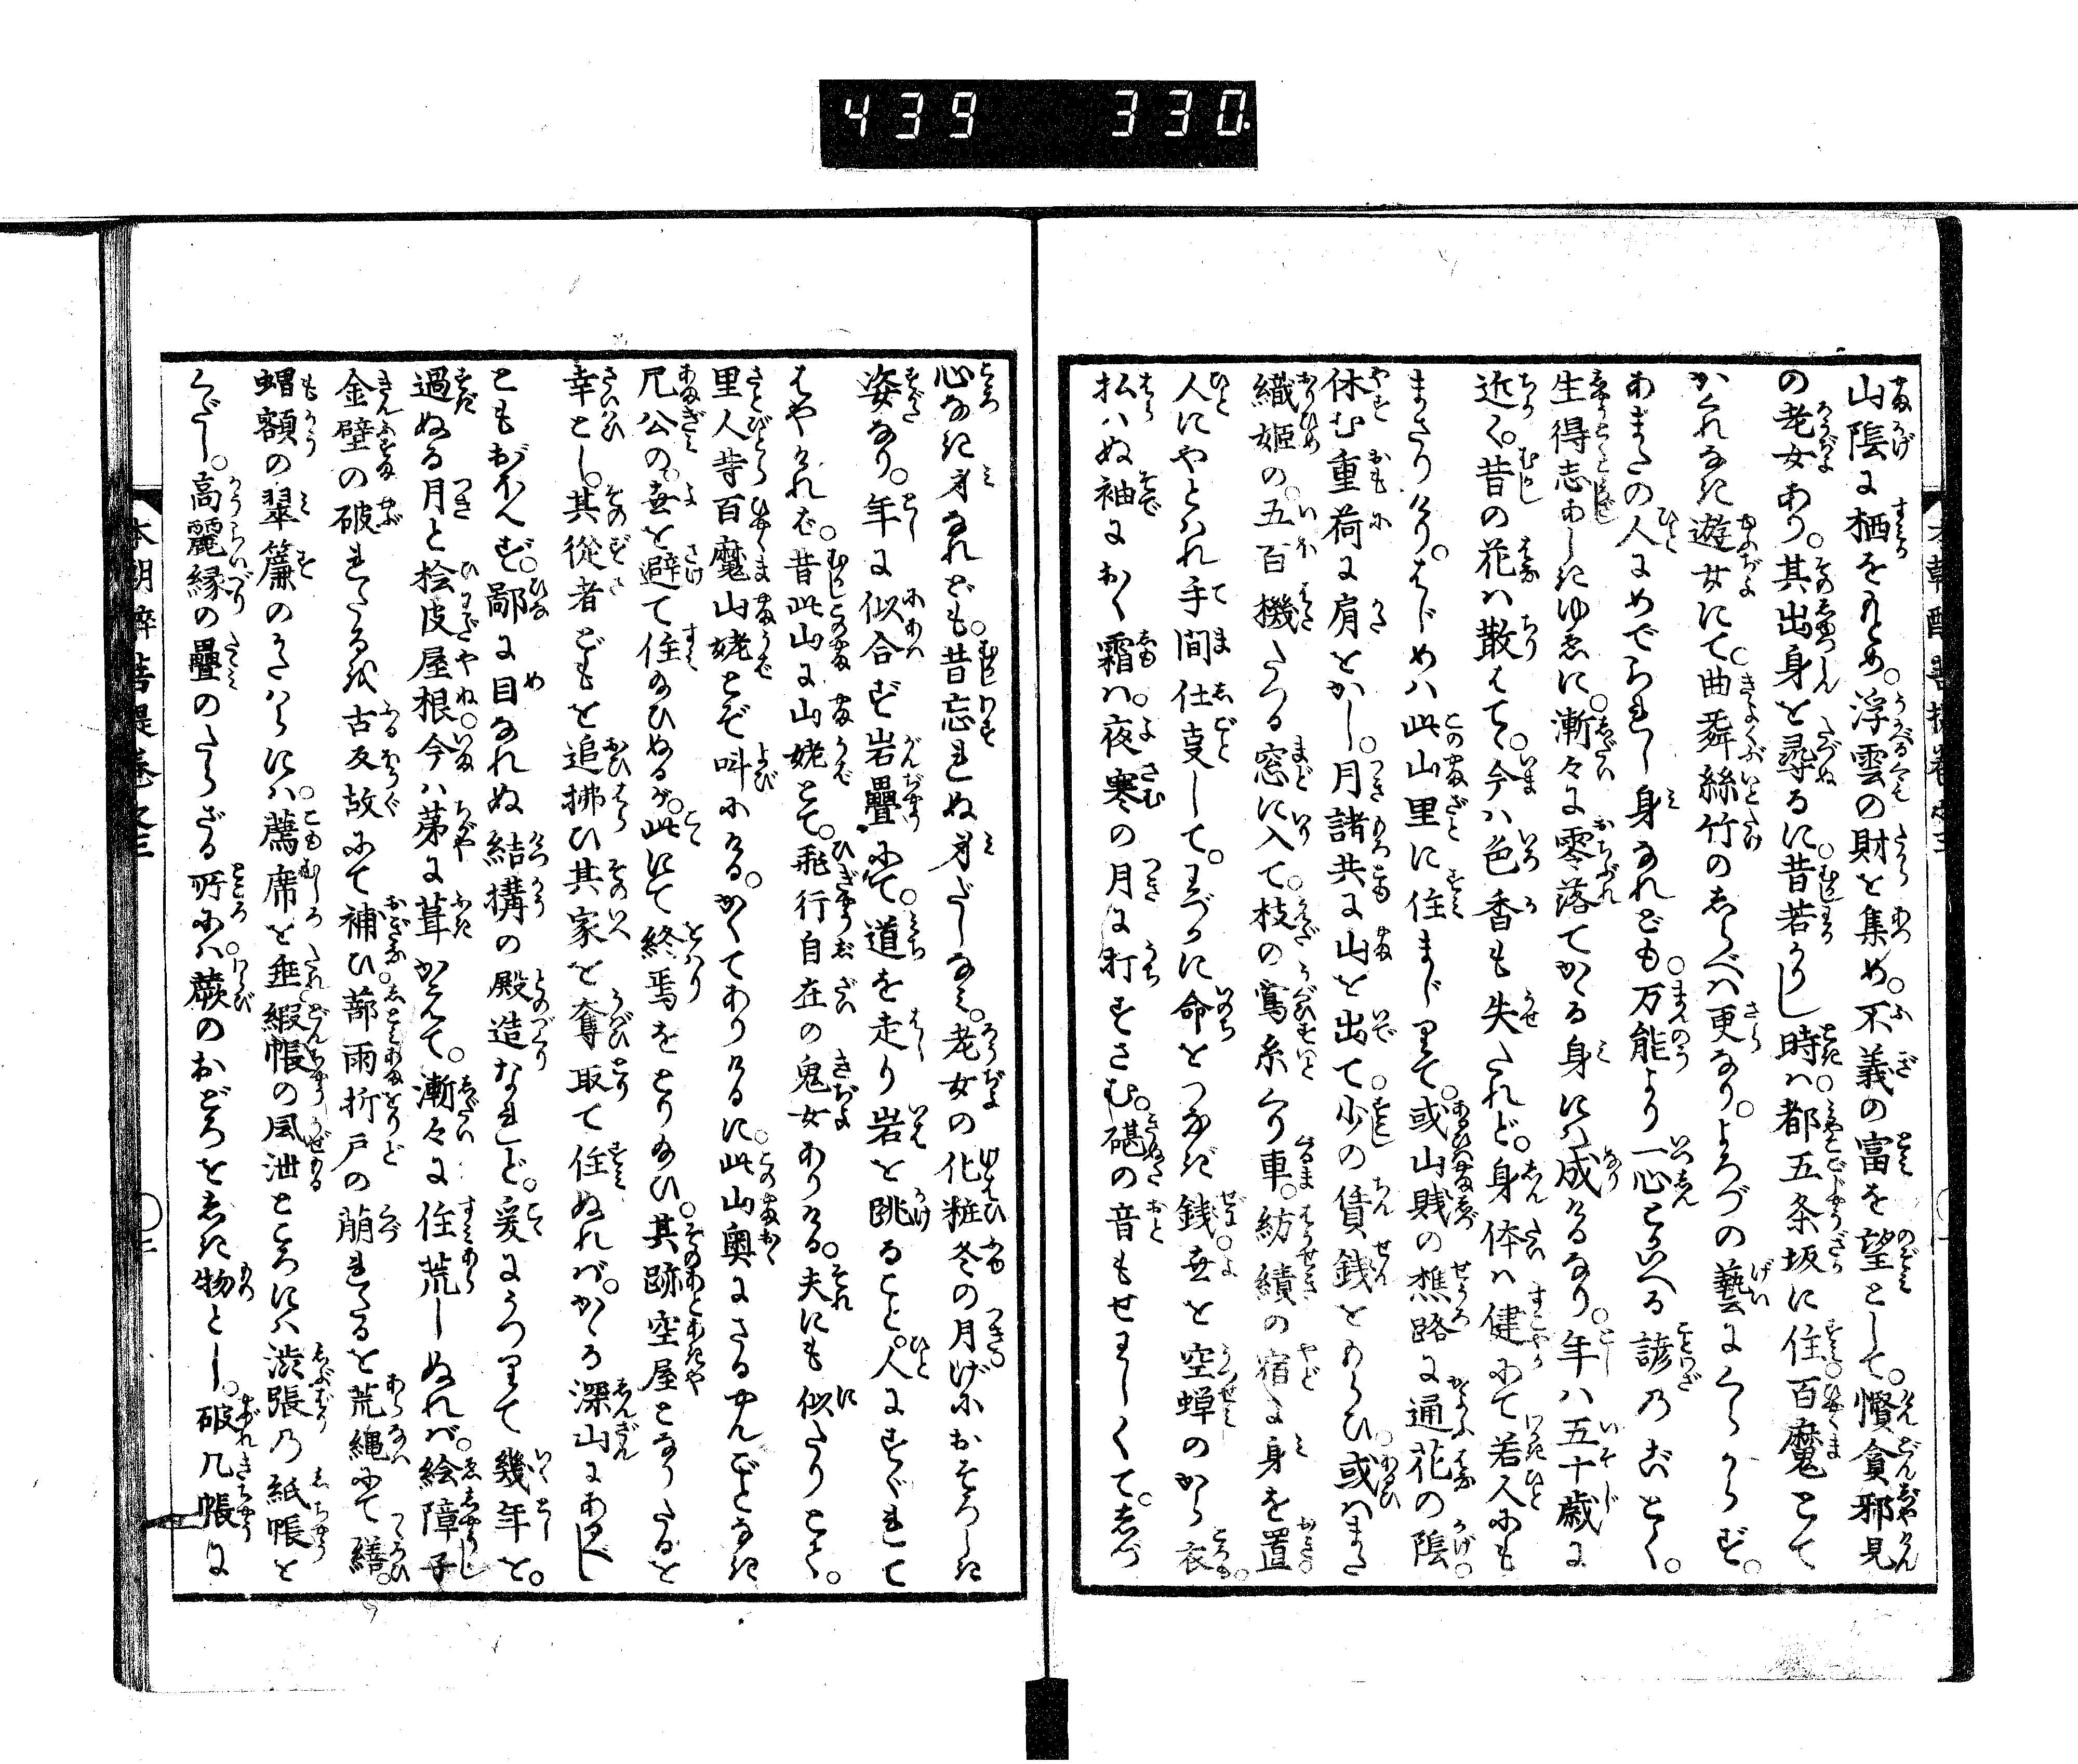 439 330.
山陰に栖をもとめ。浮雲の財を集め。不義の富を望として。慳貪邪見
の老女あり。其出身を尋るに。昔若かりし時は。都五条坂に住。百魔とて
かくれなき遊女にて。曲舞絲竹のしらべは更なり。よろづの藝にくらからず。
あまたの人にめでられし身なれども。万能より一心といへる諺のごとく。
生得志あしきゆゑに。漸々に零落てかゝる身には成けるなり。年は五十歳に
近く。昔の花は散はて。今は色香も失たれど。身体は健にて若人にも
まさりけり。はじめは此山里に住まじりて。或山賎の樵路に通花の陰。
休む重荷に肩をかし。月諸共に山を出て。少の賃銭をもらひ。或はまた
織姫の。五百機たつる窓に入て。枝の鴬糸くり車。紡績の宿に身を置。
人にやとはれ手間仕事して。わづかに命をつなぎ銭。世を空蝉のから衣。
払はぬ袖におく霜は。夜寒の月に打すさむ。碪の音もせわしくて。しづ
心なき身なれども。昔忘れぬ身だしなみ。老女の化粧冬の月げにおそろしき
姿なり。年に似合ず岩畳にて。道を走り岩を跳ること。人にすぐれて
はやければ。昔此山に山姥とて。飛行自在の鬼女ありける。夫にも似たりとて。
里人等百魔山姥とぞ呼ける。かくてありけるに。此山奥にさるやんごとなき
尼公の。世を避て住給ひぬるが。此にて終焉をとり給ひ。其跡空屋となりたるを
幸とし。其従者どもを追拂ひ其家を奪取て住ぬれば。かゝる深山にあるべし
ともおぼへず。鄙に目なれぬ結構の殿造なれど。爰にうつりて幾年を。
過ぬる月と桧皮屋根。今は茅に葺かえて。漸々に住荒しぬれば。絵障子
金壁の破れたるは古反故にて補ひ。蔀雨折戸の崩れたるを荒縄にて繕。
蝐額の翠簾のかたはらには。薦席を垂。緞帳の風泄ところには渋張の紙帳を
くだし。高麗縁の疊のたらざる所には。蕨のおどろをしき物とし。破几帳に